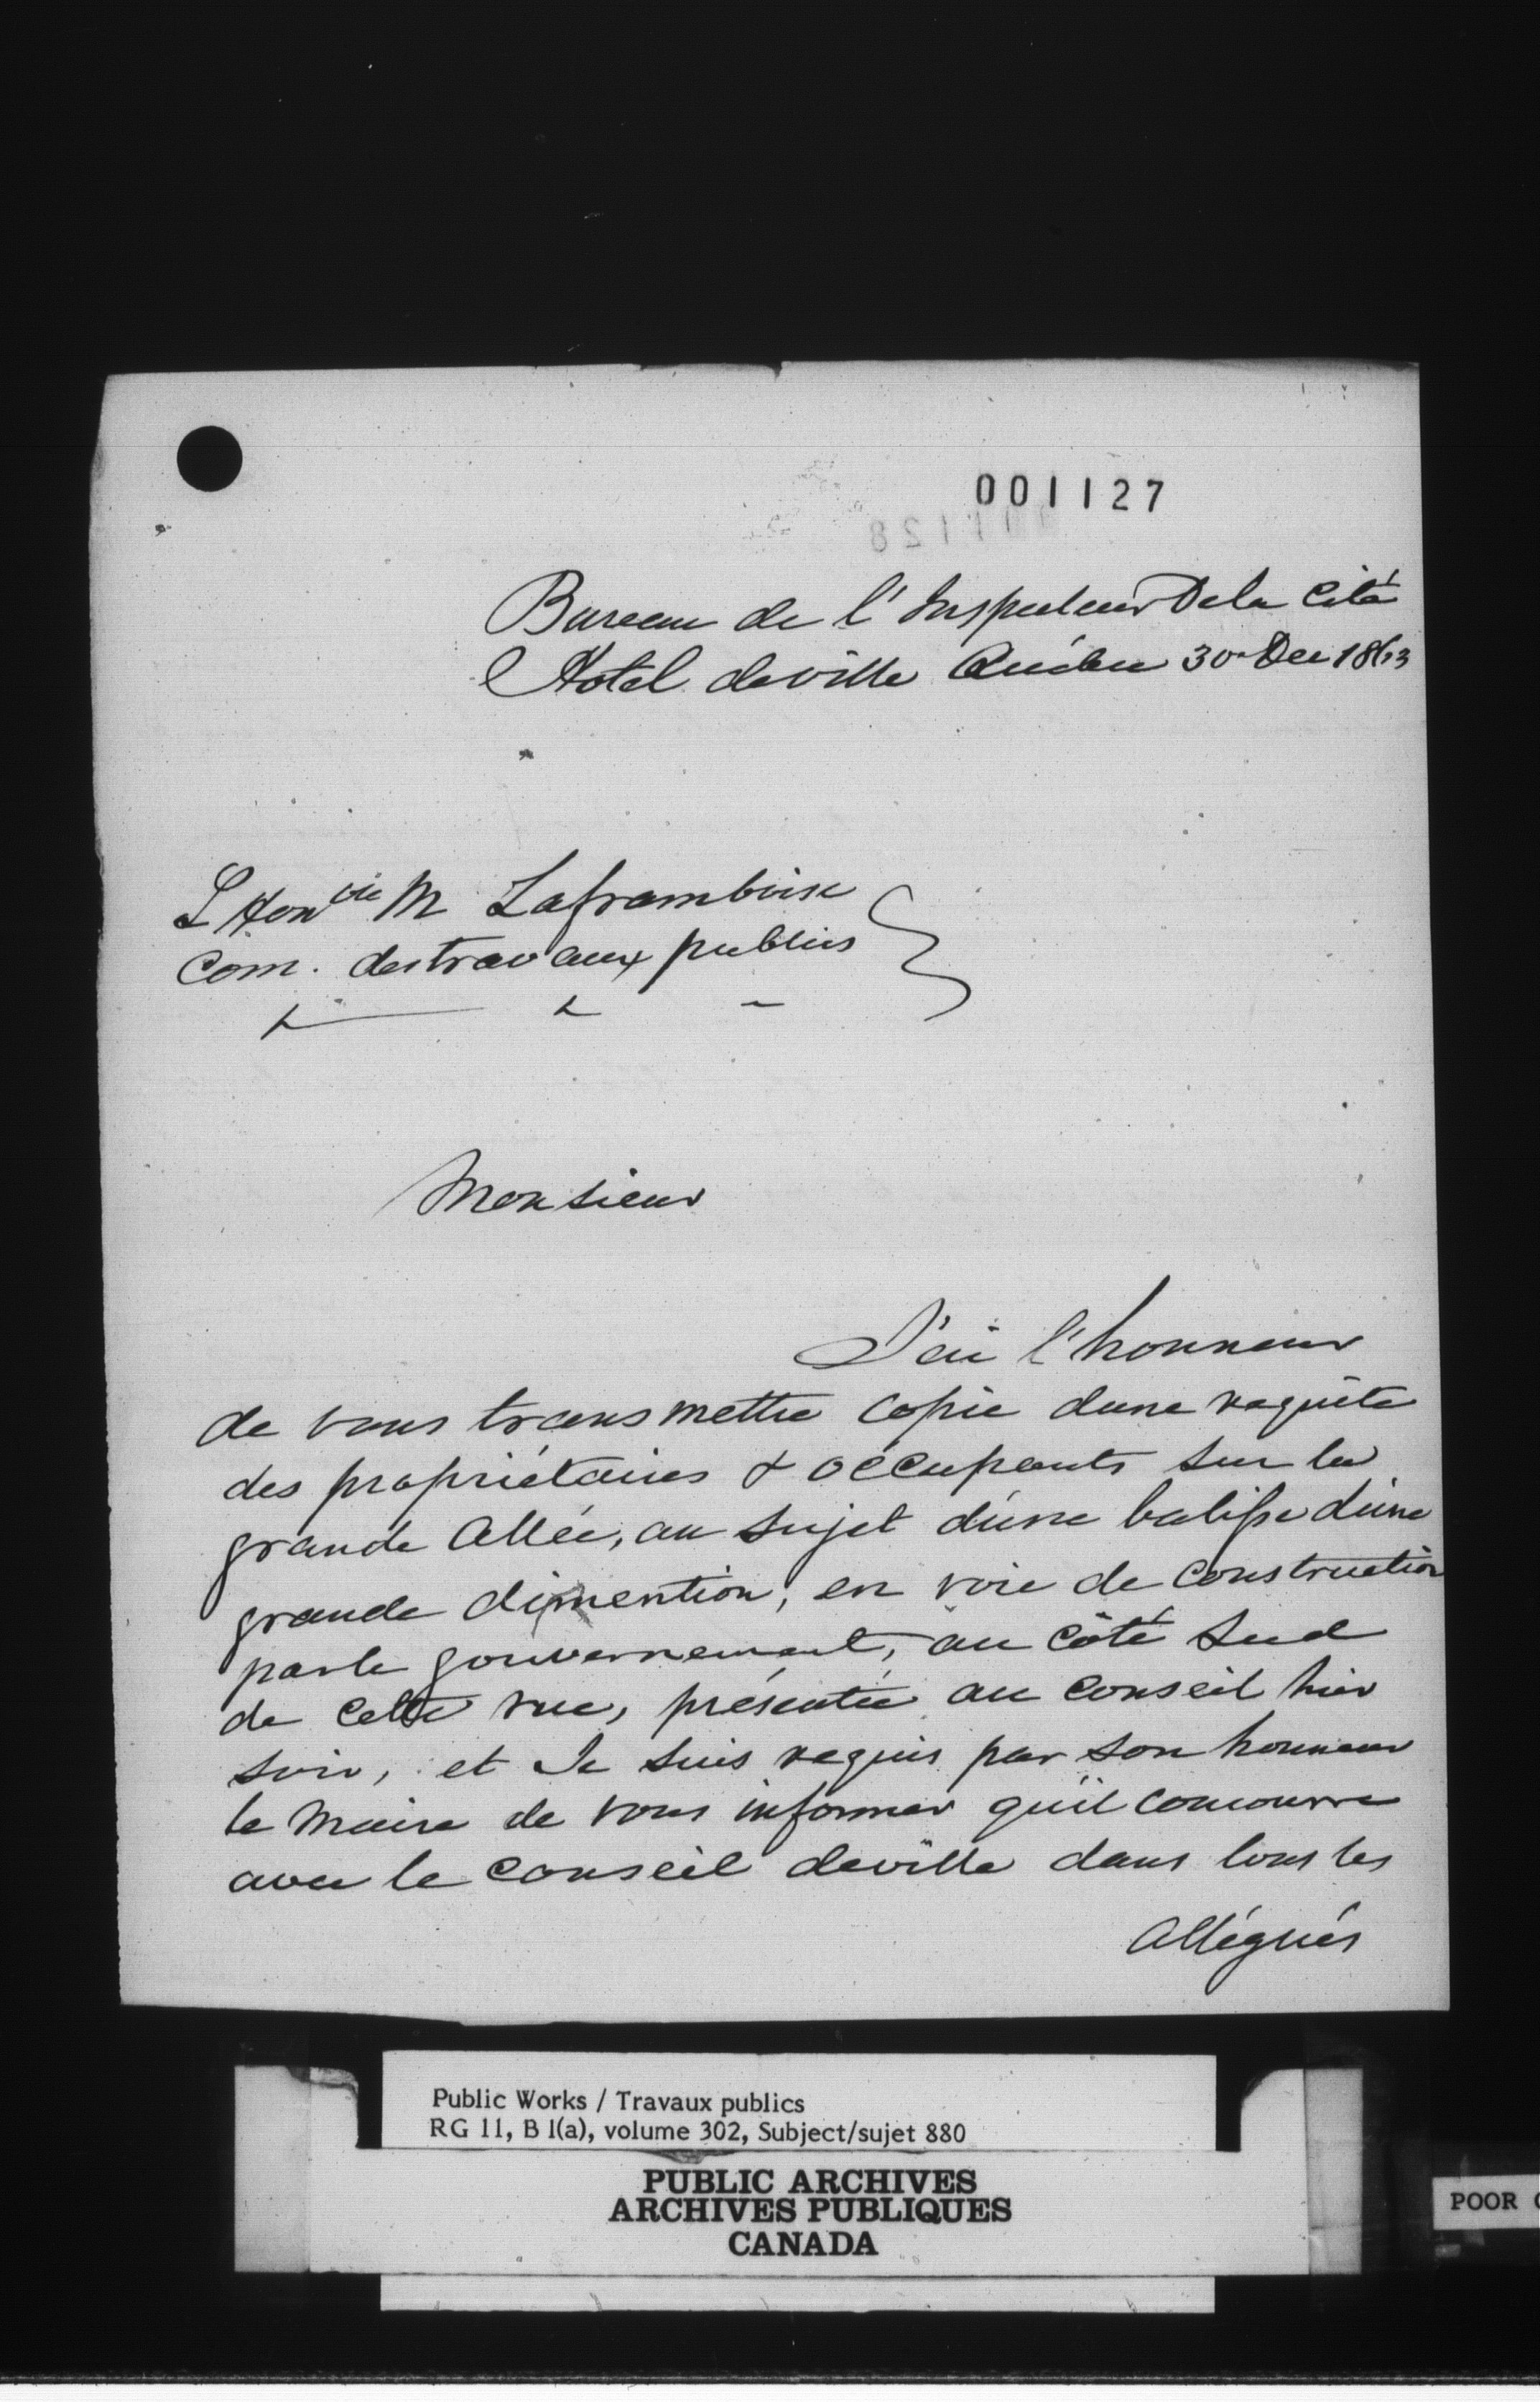 001127
Bureau de l'Inspecteur De la Cité
Hotel de ville Québec 30 Dec 1863
L Honble M Laframboise
Com. des travaux publics
Monsieur
J'ai l'honneur
de vous transmettre copie dune requête
des propriétaires & occupants sur la
grande Allée, au sujet d'une batisse d'une
grande dimention, en voie de Construction
par le gouvernement, au côté Sud
de cette rue, présentée au Conseil hier
soir, et Je suis requis par son honneur
le Maire de vous informer qu'il concourre
avec le Conseil de ville dans tous les
Allégués
Public Works / Travaux publics
RG 11, B 1(a), volume 302, Subject/sujet 880
PUBLIC ARCHIVES
ARCHIVES PUBLIQUES
CANADA
POOR